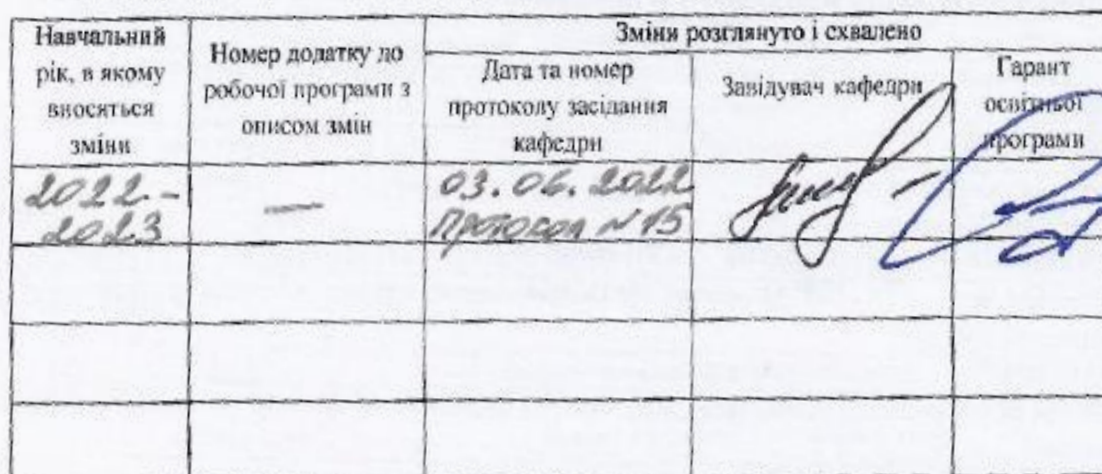 Навчальний
рік, в якому
вносяться
зміни
Номер додатку до
робочої програми з
описом змін
Зміни розглянуто і схвалено
Дата та номер
протоколу засідання
кафедри
Завідувач кафедри
Гарант
освітньої
програми
2022-
2023
—
03.06.2022
Протокол №15